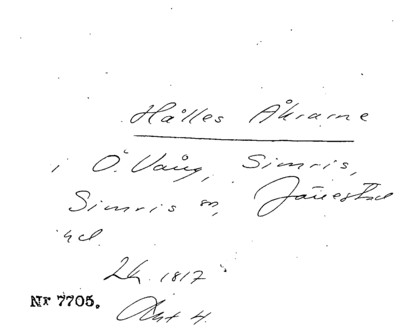 Hålles Åkrarne
i Ö. Vång, Simris,
Simris sn, Järrestad
hd.
Lh. 1817
Nr 7705. Akt 4.